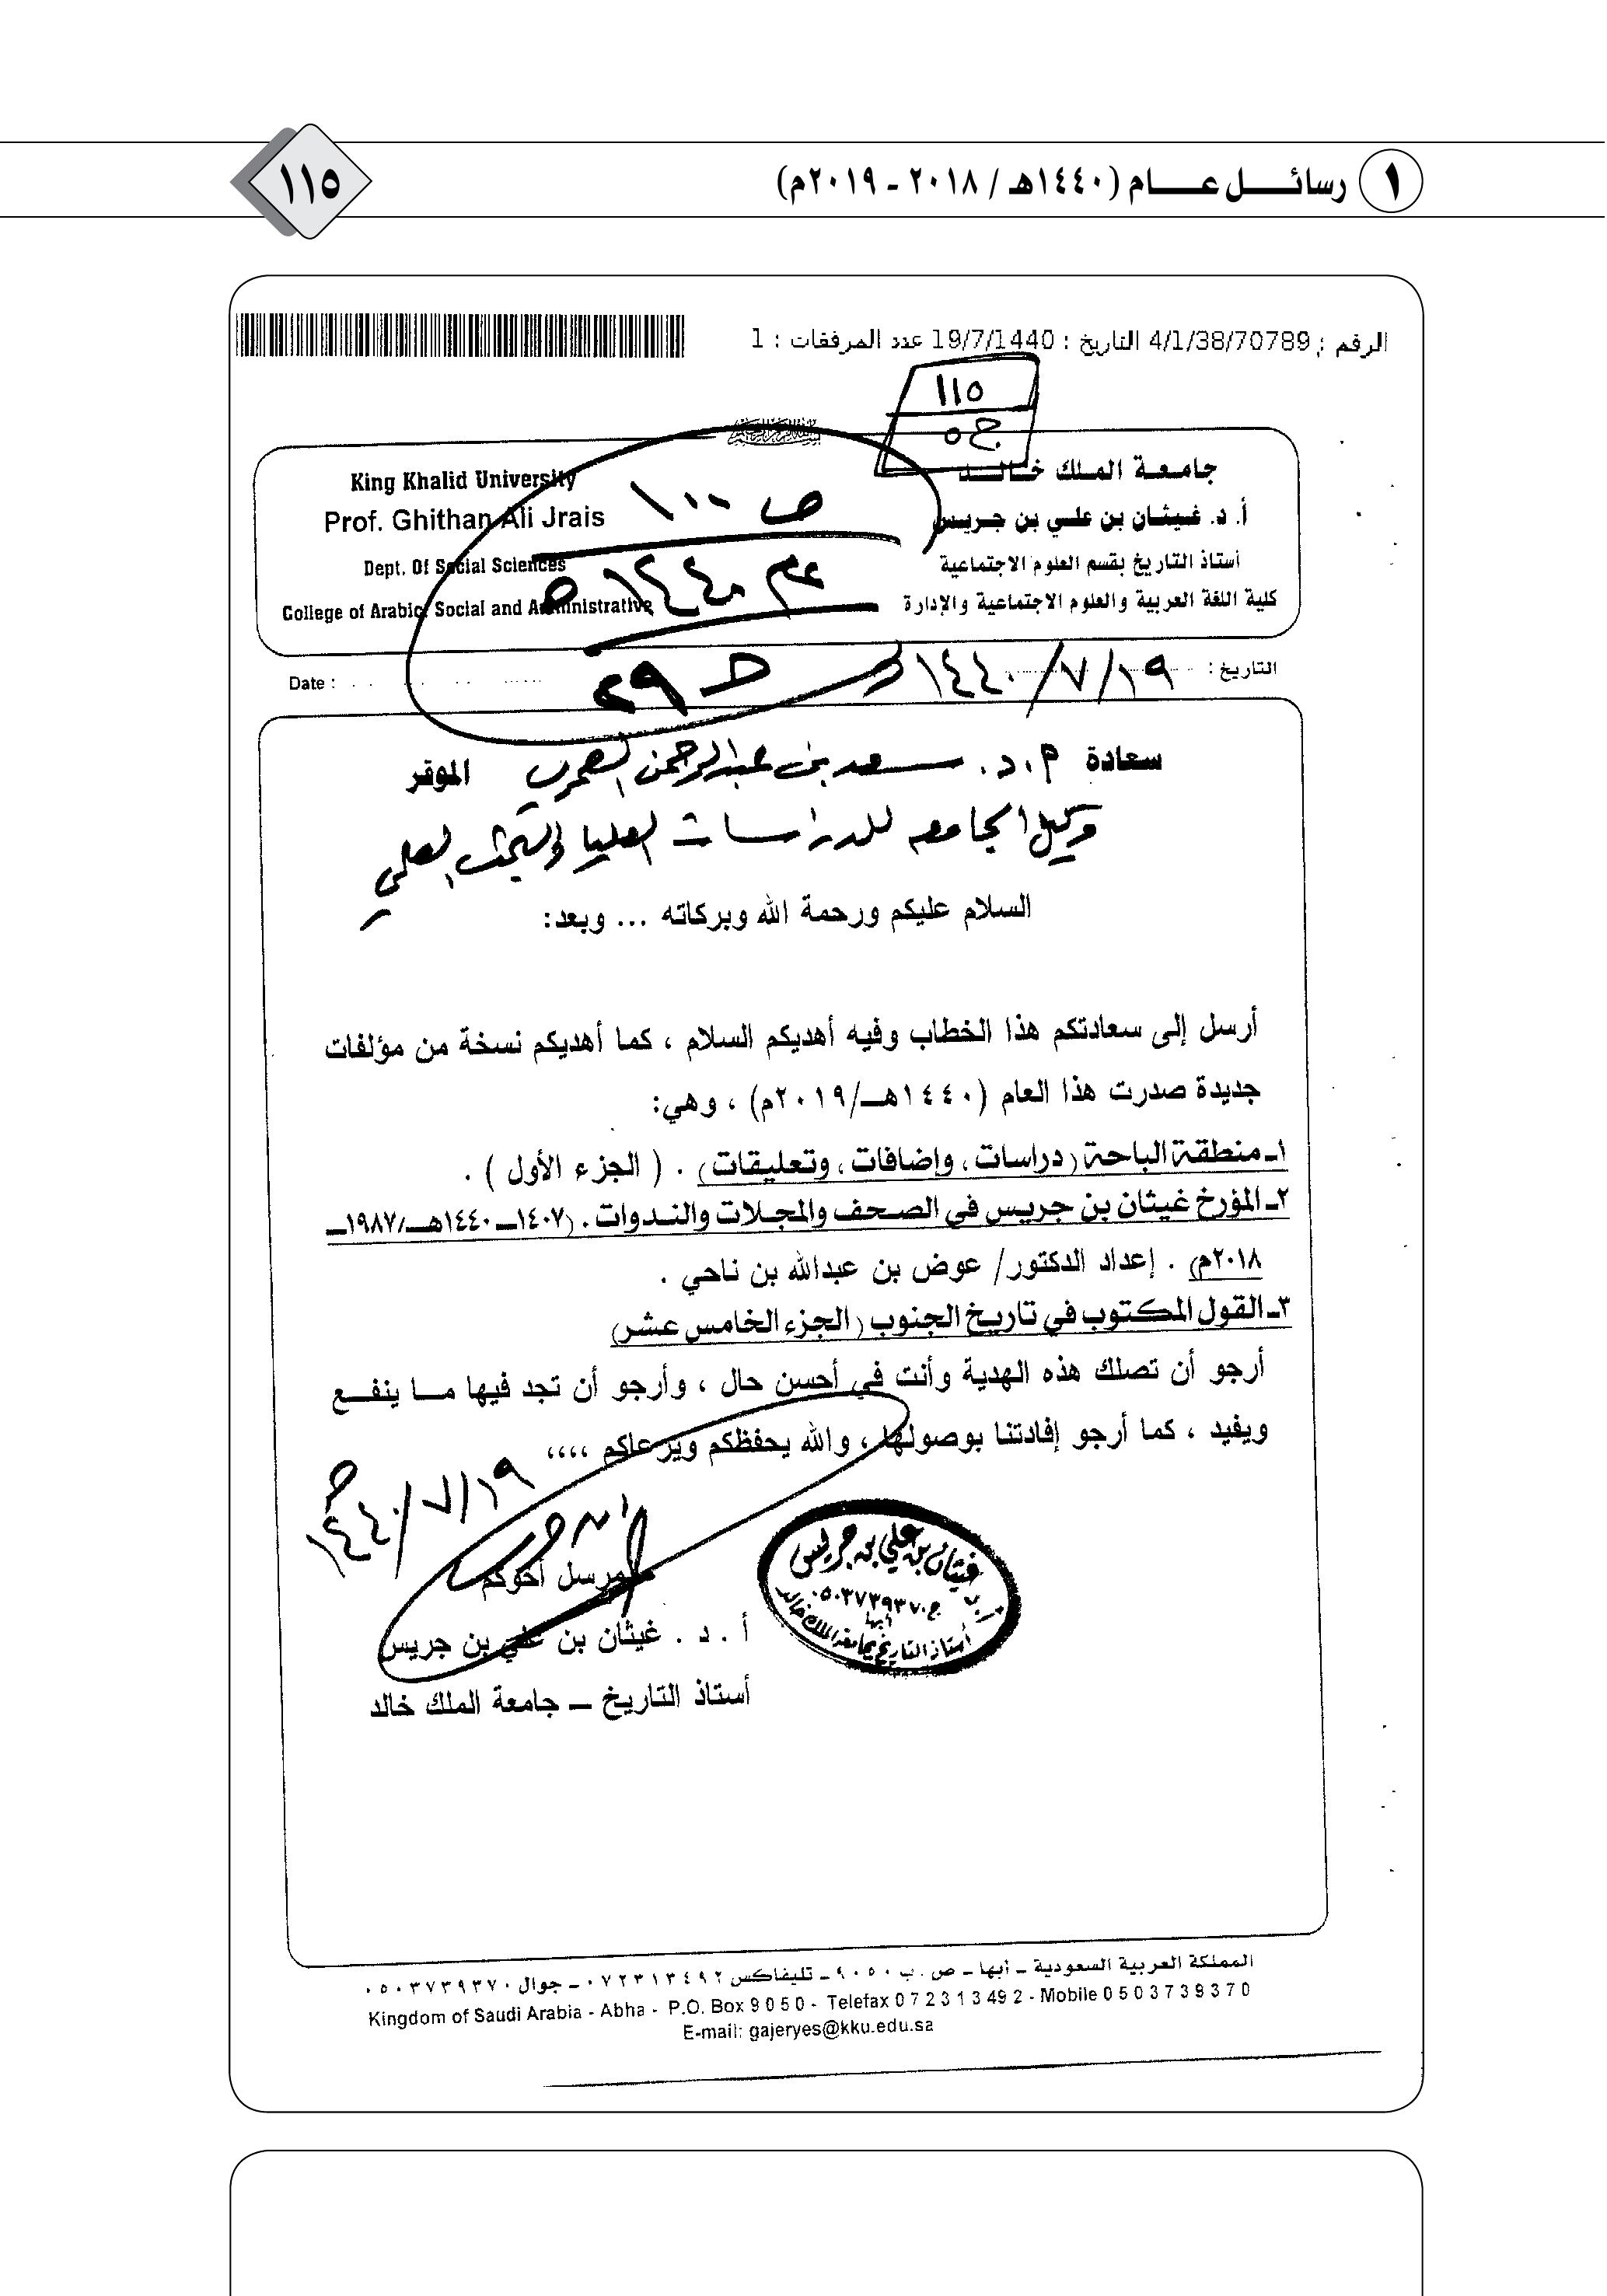 ١ رسائل عام (١٤٤٠هـ / ٢٠١٨ - ٢٠١٩م)
١١٥
الرقم : 4/1/38/70789 التاريخ : 19/7/1440 عدد المرفقات : 1
١١٥
ج ٥
جامعة الملك خالد
أ. د. غيثان بن علي بن جريس
أستاذ التاريخ بقسم العلوم الاجتماعية
كلية اللغة العربية والعلوم الاجتماعية والإدارة
King Khalid University
Prof. Ghithan Ali Jrais
Dept. Of Social Sciences
College of Arabic, Social and Administrative
ص ١٠٠
عام ١٤٤٠هـ
التاريخ : ١٩/٧/١٤٤٠
Date :
سعادة أ.د. سعد بن عبدالرحمن العمري الموقر
وكيل الجامعة للدراسات العليا والبحث العلمي
السلام عليكم ورحمة الله وبركاته ... وبعد:
أرسل إلى سعادتكم هذا الخطاب وفيه أهديكم السلام ، كما أهديكم نسخة من مؤلفات
جديدة صدرت هذا العام (١٤٤٠هـ/٢٠١٩م) ، وهي:
١ـ منطقة الباحة (دراسات ، وإضافات ، وتعليقات) . ( الجزء الأول ) .
٢ـ المؤرخ غيثان بن جريس في الصحف والمجلات والندوات . (١٤٠٧ـ ١٤٤٠هـ/١٩٨٧ـ
٢٠١٨م) . إعداد الدكتور/ عوض بن عبدالله بن ناحي .
٣ـ القول المكتوب في تاريخ الجنوب (الجزء الخامس عشر)
أرجو أن تصلك هذه الهدية وأنت في أحسن حال ، وأرجو أن تجد فيها ما ينفع
ويفيد ، كما أرجو إفادتنا بوصولها ، والله يحفظكم ويرعاكم ،،،،
١٩/٧/١٤٤٠هـ
المرسل أخوكم
أ . د . غيثان بن علي بن جريس
أستاذ التاريخ ـ جامعة الملك خالد
غيثان بن علي بن جريس
ج ٠٥٠٣٧٣٩٣٧٠
أبها
أستاذ التاريخ بجامعة الملك خالد
المملكة العربية السعودية ـ أبها ـ ص . ب ٩٠٥٠ ـ تليفاكس ٠٧٢٣١٣٤٩٢ ـ جوال ٠٥٠٣٧٣٩٣٧٠
Kingdom of Saudi Arabia - Abha - P.O. Box 9050 - Telefax 072313492 - Mobile 0503739370
E-mail: gajeryes@kku.edu.sa